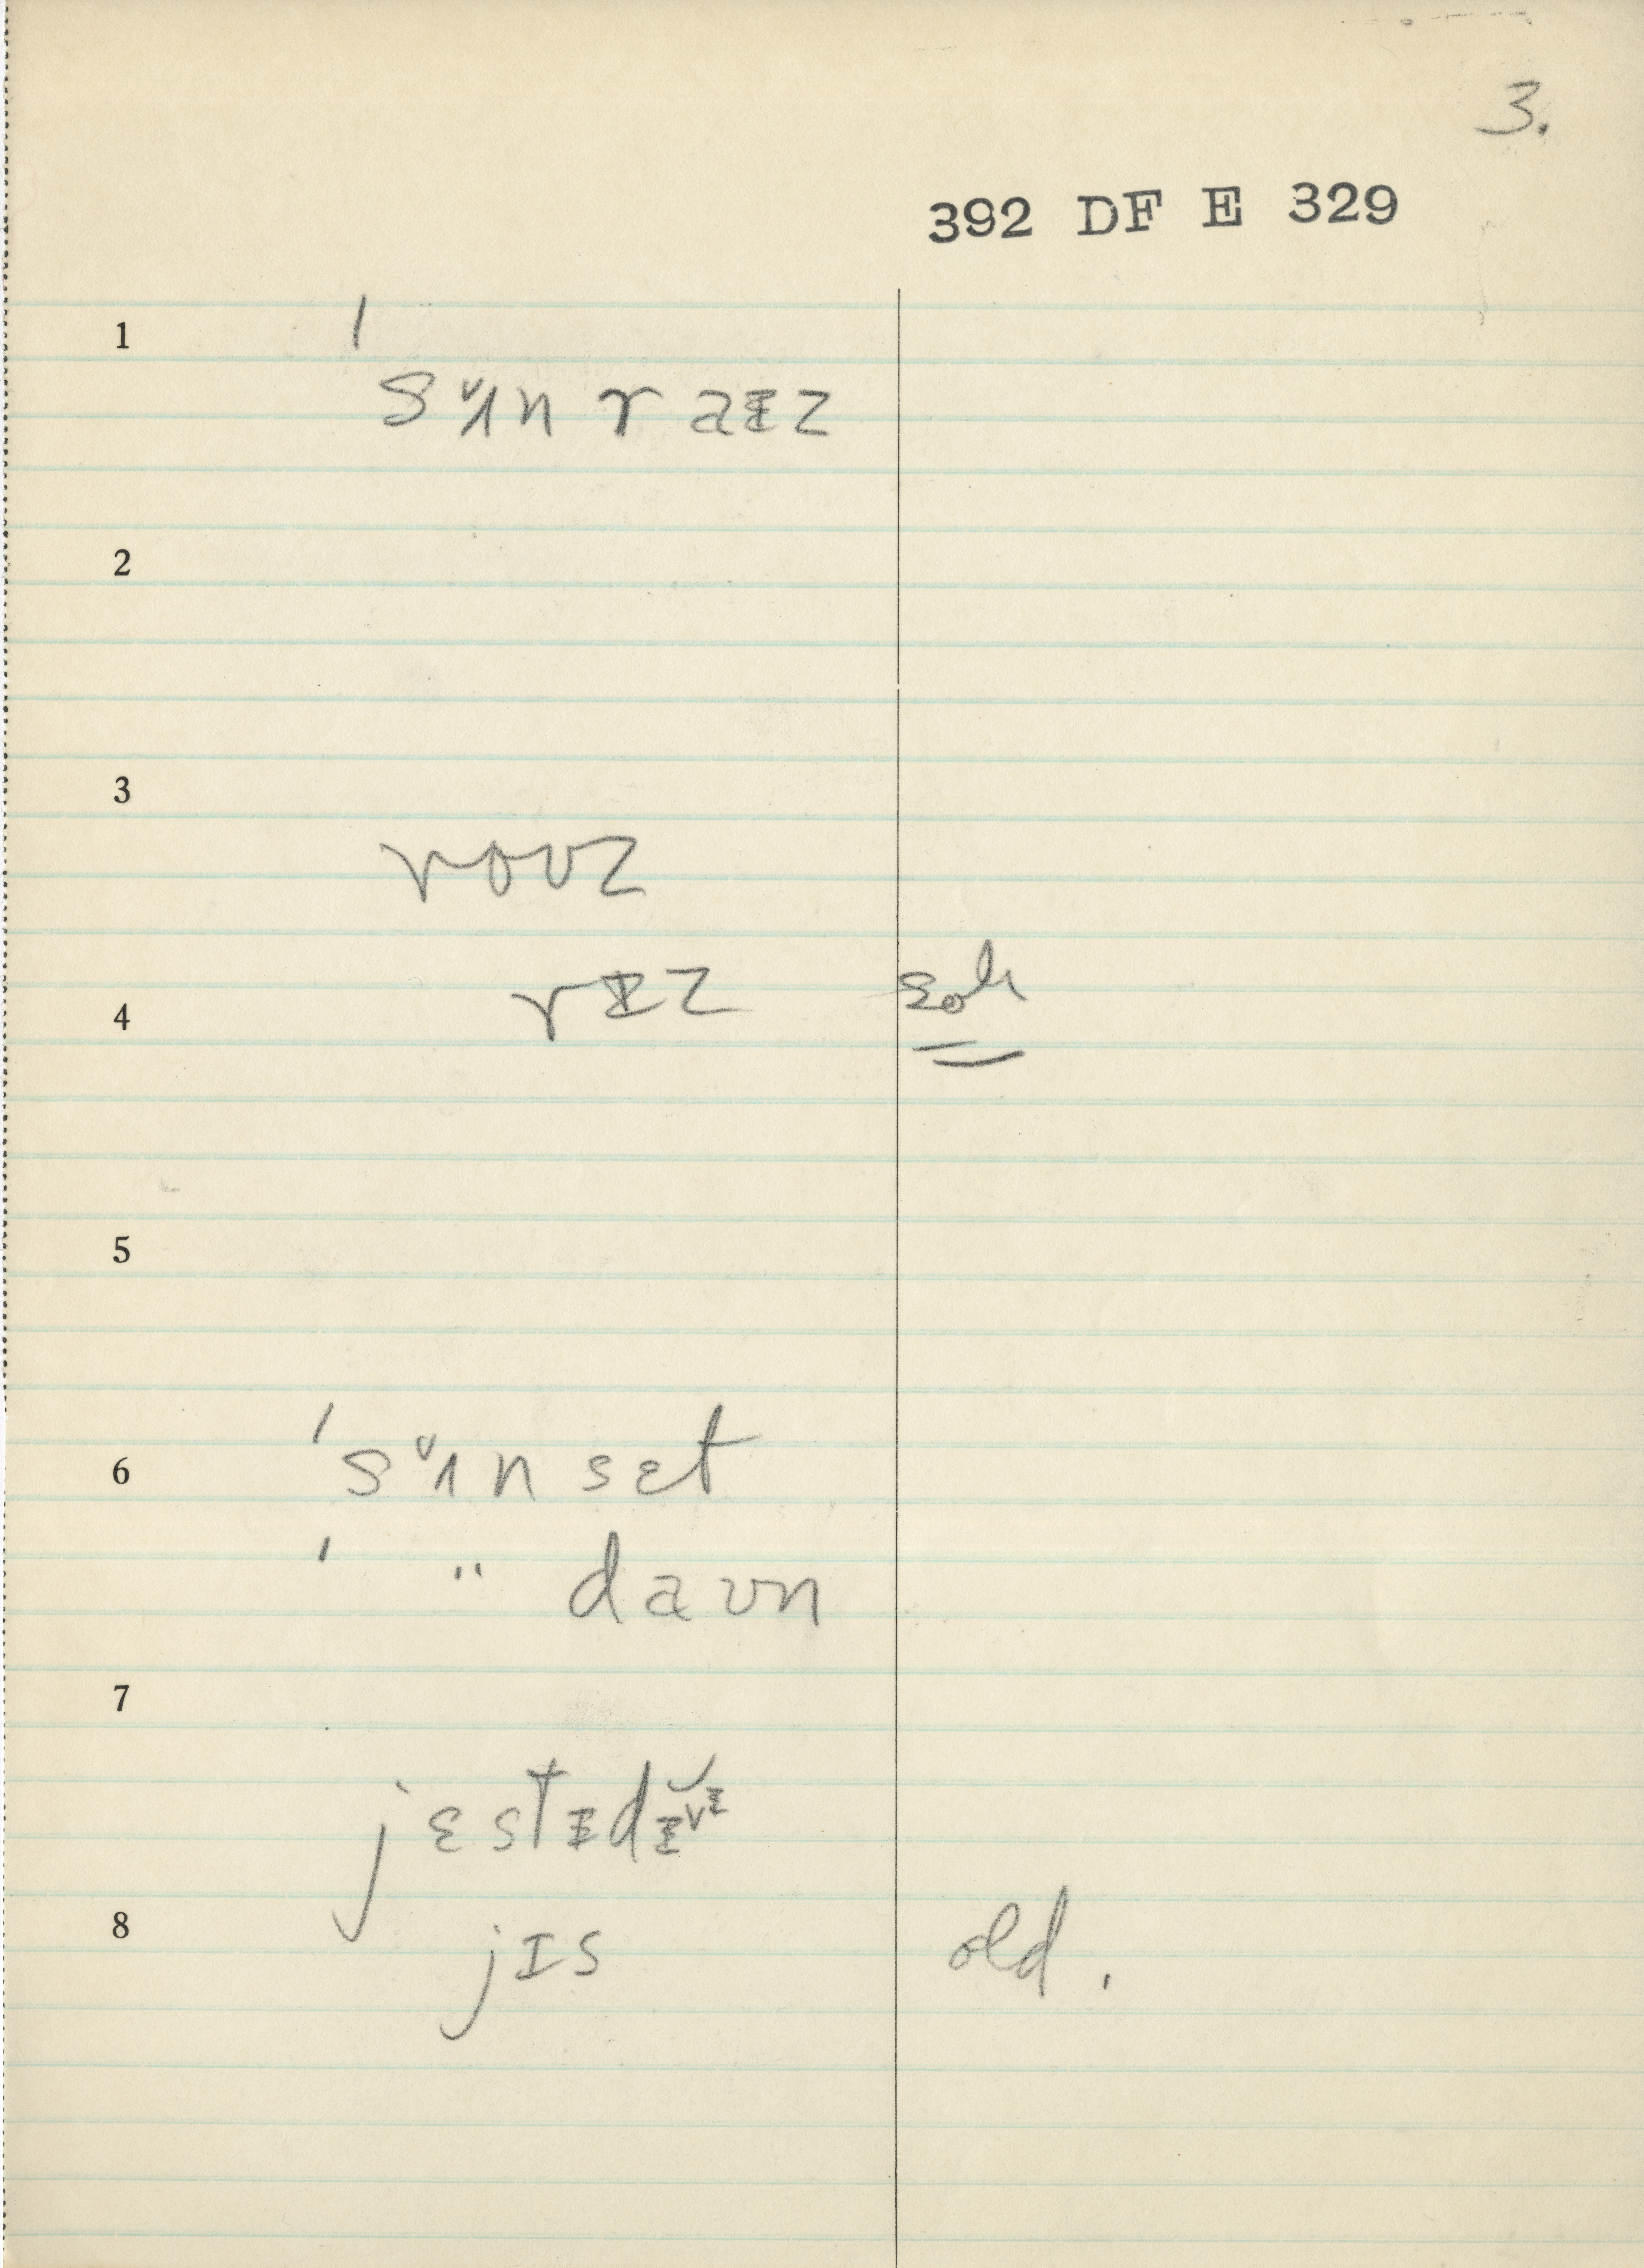 3.
392 DF E 329
1
ˈsᵛʌn raɪz
2
3
roʊz
4 rɪz
5
6 ˈsᵛʌn sɛt
ˈ " daʊn
7
jɛstɪdɪ̆ᵛᶦ
8 jɪs old.